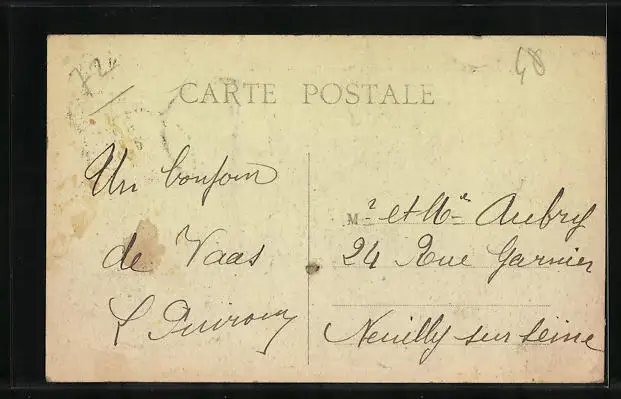 72
48
CARTE POSTALE
Un bonjour
de Vaas
Mr et Me Aubry
24 Rue Garnier
Neuilly sur Seine